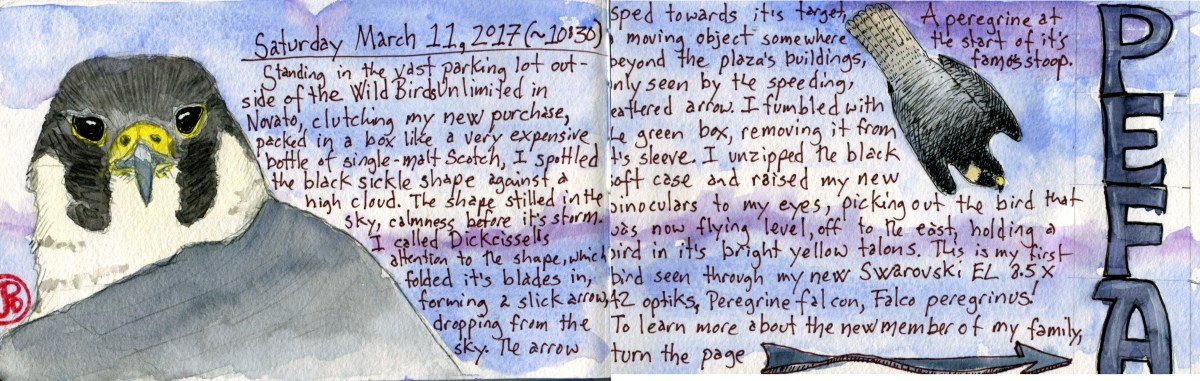 Saturday March 11, 2017 (~10:30)
Standing in the vast parking lot out-
side of the Wild Birds Unlimited in
Novato, clutching my new purchase,
packed in a box like a very expensive
bottle of single-malt Scotch, I spotted
the black sickle shape against a
high cloud. The shape stilled in the
sky, calmness before it's storm.
I called Dickcissell's
attention to the shape, which
folded it's blades in,
forming a slick arrow,
dropping from the
sky. The arrow
PB
sped towards it's target,
moving object somewhere
beyond the plaza's buildings,
only seen by the speeding,
feathered arrow. I fumbled with
the green box, removing it from
it's sleeve. I unzipped the black
soft case and raised my new
binoculars to my eyes, picking out the bird that
was now flying level, off to the east, holding a
bird in it's bright yellow talons. This is my first
bird seen through my new Swarovski EL 8.5x
42 optiks, Peregrine falcon, Falco peregrinus!
To learn more about the new member of my family,
turn the page
A peregrine at
the start of it's
famos stoop.
PEFA